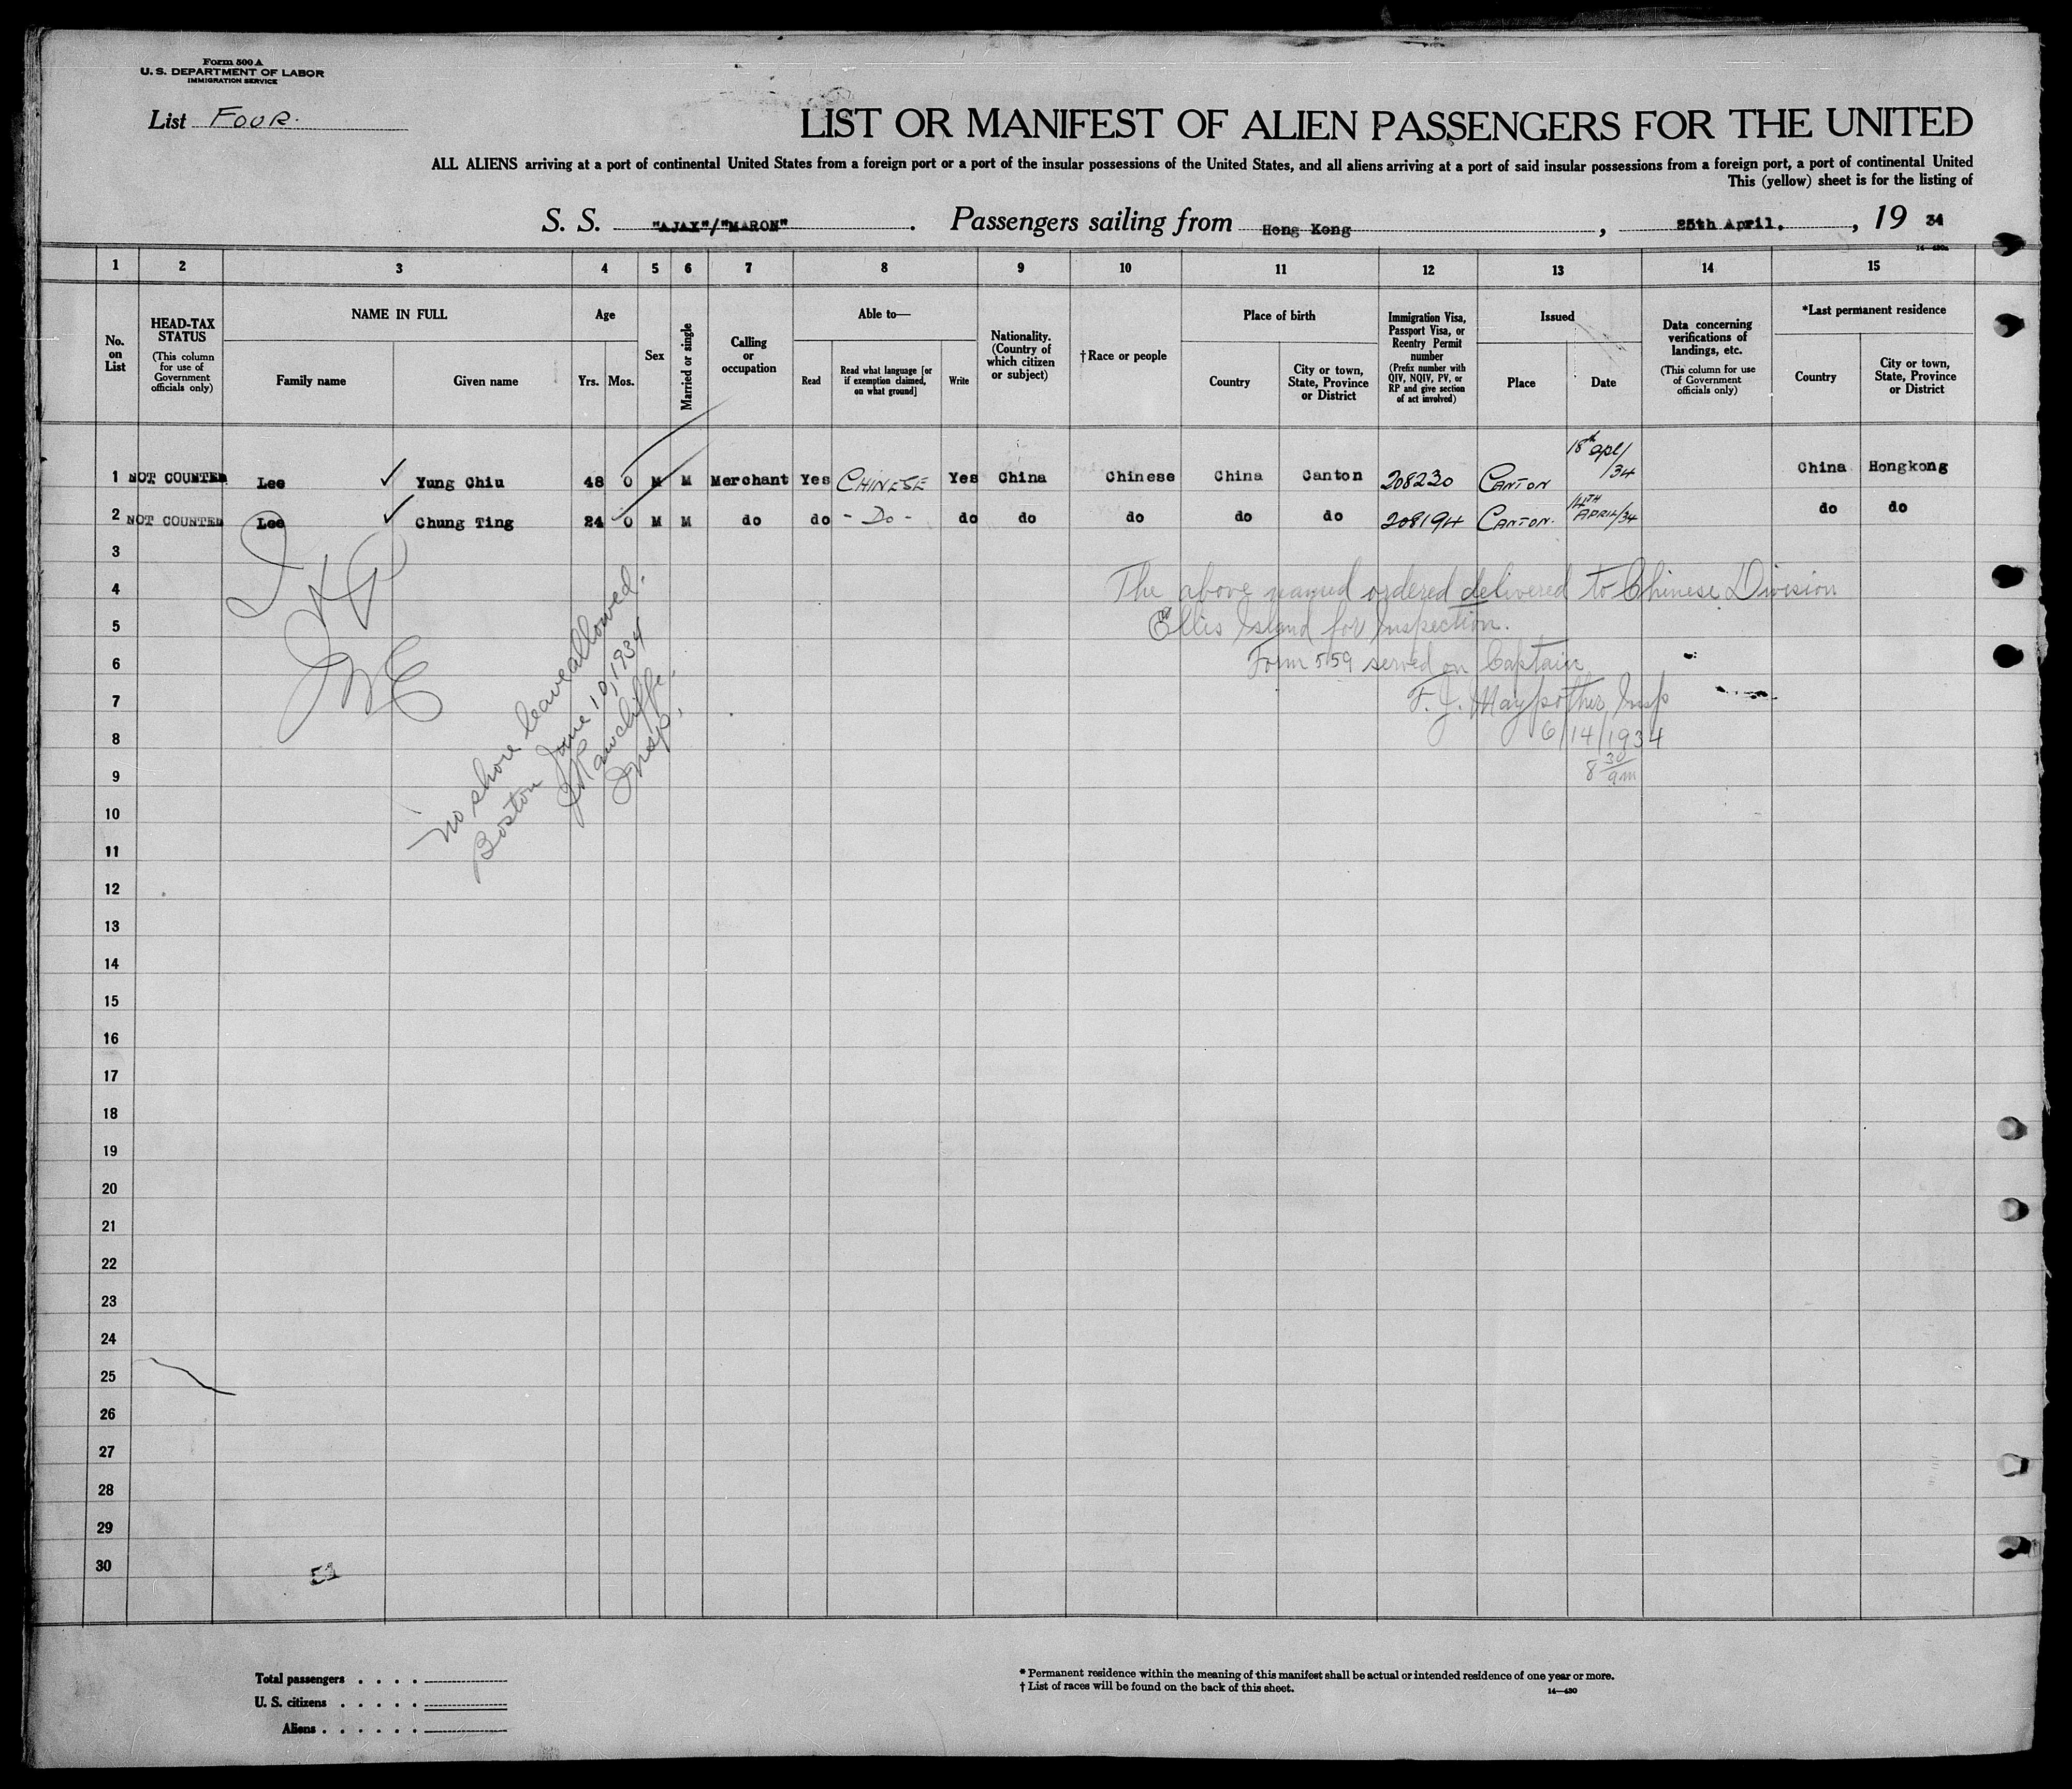 Form 500 A
U. S. DEPARTMENT OF LABOR
IMMIGRATION SERVICE
List FOUR.
LIST OR MANIFEST OF ALIEN PASSENGERS FOR THE UNITED
ALL ALIENS arriving at a port of continental United States from a foreign port or a port of the insular possessions of the United States, and all aliens arriving at a port of said insular possessions from a foreign port, a port of continental United
This (yellow) sheet is for the listing of
S. S. "AJAX"/"MARON". Passengers sailing from Hong Kong, 25th April., 19 34
14—430a
1 2 3 4 5 6 7 8 9 10 11 12 13 14 15
No. on List
HEAD-TAX STATUS
(This column for use of Government officials only)
NAME IN FULL
Family name
Given name
Age
Yrs.
Mos.
Sex
Married or single
Calling or occupation
Able to—
Read
Read what language [or if exemption claimed, on what ground]
Write
Nationality. (Country of which citizen or subject)
†Race or people
Place of birth
Country
City or town, State, Province or District
Immigration Visa, Passport Visa, or Reentry Permit number
(Prefix number with QIV, NQIV, PV, or RP and give section of act involved)
Issued
Place
Date
Data concerning verifications of landings, etc.
(This column for use of Government officials only)
*Last permanent residence
Country
City or town, State, Province or District
1 NOT COUNTED Lee ✓ Yung Chiu 48 0 M M Merchant Yes CHINESE Yes China Chinese China Canton 208230 CANTON 18th Apl/34 China Hongkong
2 NOT COUNTED Lee ✓ Chung Ting 24 0 M M do do - Do - do do do do do 208194 CANTON. 14TH APRIL/34 do do
3
4
5
6
7
8
9
10
11
12
13
14
15
16
17
18
19
20
21
22
23
24
25
26
27
28
29
30
No shore leave allowed.
Boston June 10, 1934
Rawcliffe
Insp.
The above named ordered delivered to Chinese Division
Ellis Island for Inspection.
Form 559 served on Captain
F. J. Maypother Insp
6/14/1934
8 30 am
51
Total passengers . . . .
U. S. citizens . . . . .
Aliens . . . . . .
* Permanent residence within the meaning of this manifest shall be actual or intended residence of one year or more.
† List of races will be found on the back of this sheet.
14—430